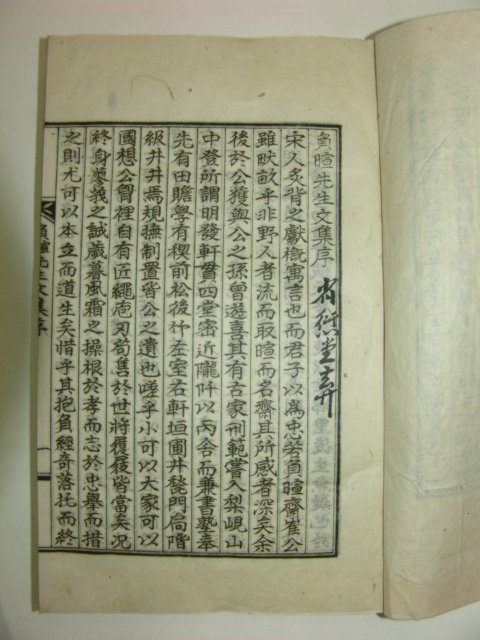 負暄先生文集序
省衍堂弆
宋人炙背之獻槪寓言也而君子以爲忠若負暄齋崔公
雖畎畝乎非野人者流而取暄而名齋其所感者深矣余
後於公獲與公之孫曾遊喜其有古家刑範嘗入梨峴山
中登所謂明發軒曁四堂密近隴阡以丙舍而兼書塾奉
先有田贍學有稧前松後竹左室右軒垣圃井甃門局階
級井井焉規撫制置皆公之遺也嗟乎小可以大家可以
國想公胷裡自有近繩庖刃苟售於世將履屐皆當矣况
終身蓼義之誠歲暮風霜之操根於孝而志於忠擧而措
之則尤可以本立而道生矣惜乎其抱負經奇落托而終
負暄先生文集序
一